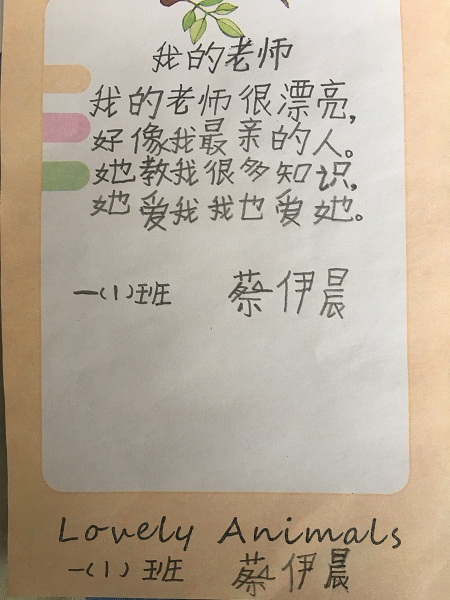 我的老师
我的老师很漂亮,
好像我最亲的人。
她教我很多知识,
她爱我我也爱她。
一(1)班 蔡伊晨
Lovely Animals
一(1)班 蔡伊晨